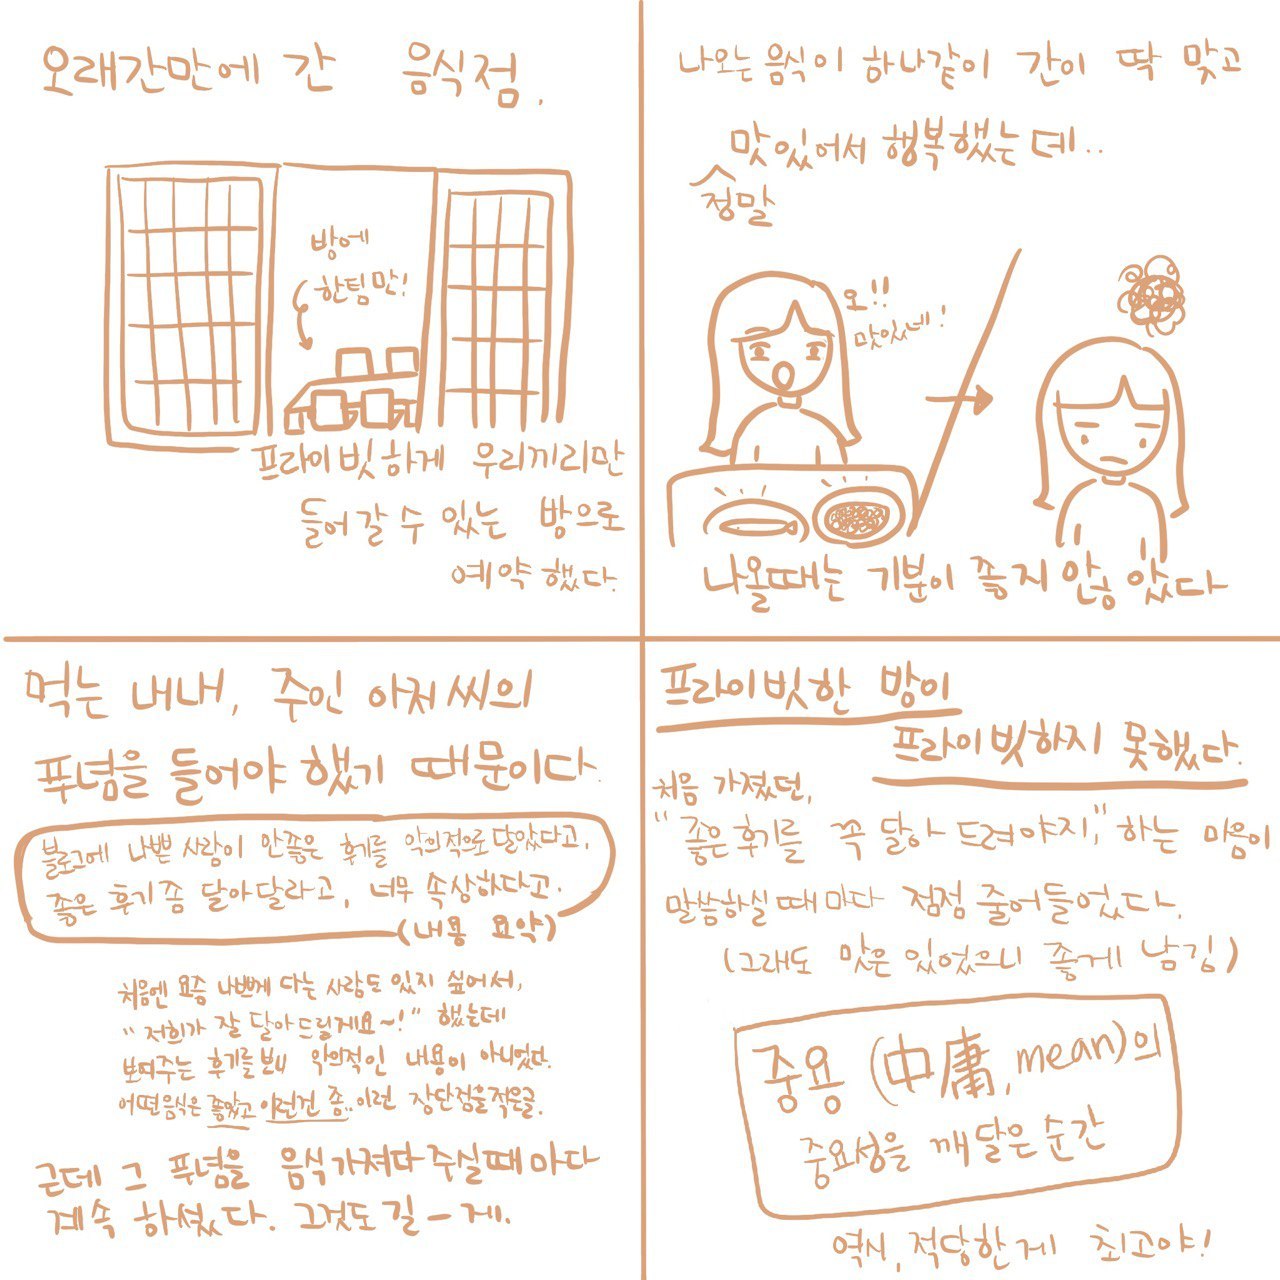 오래간만에 간 음식점.
방에
한팀만!
프라이빗하게 우리끼리만
들어갈 수 있는 방으로
예약했다.
나오는 음식이 하나같이 간이 딱 맞고
맛있어서 행복했는데..
정말
오!!
맛있네!
나올때는 기분이 좋지 않았다
먹는 내내, 주인 아저씨의
푸념을 들어야 했기 때문이다.
블로그에 나쁜 사람이 안좋은 후기를 악의적으로 달았다고,
좋은 후기 좀 달아달라고, 너무 속상하다고.
(내용 요약)
처음엔 요즘 나쁘게 다는 사람도 있지 싶어서,
"저희가 잘 달아드릴게요~!" 했는데
보여주는 후기를 보니 악의적인 내용이 아니었다.
어떤음식은 좋았고 이런건 좀.. 이런 장단점을 적은글.
근데 그 푸념을 음식가져다 주실때마다
계속 하셨다. 그것도 길-게.
프라이빗한 방이
프라이빗하지 못했다.
처음 가졌던,
"좋은후기를 꼭 달아 드려야지," 하는 마음이
말씀하실 때마다 점점 줄어들었다.
(그래도 맛은 있었으니 좋게 남김)
중용 (中庸, mean)의
중요성을 깨달은 순간
역시, 적당한게 최고야!